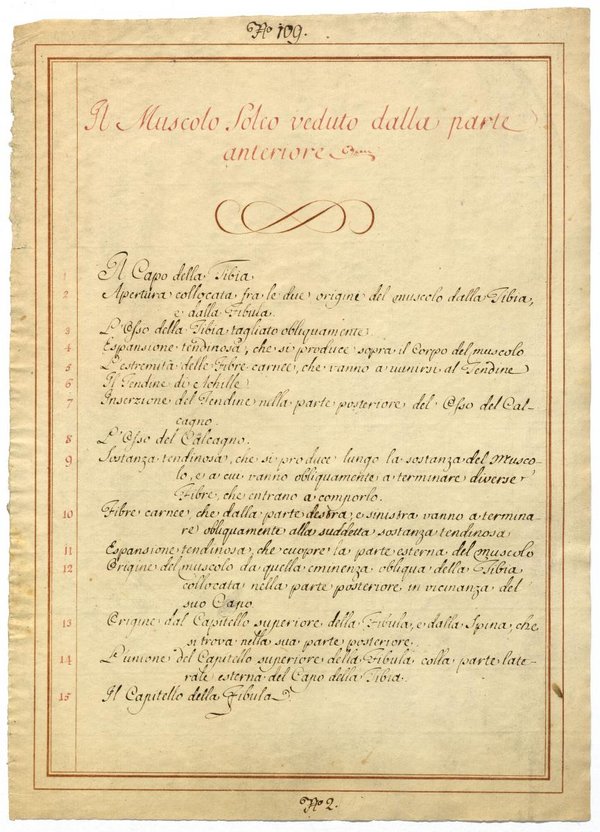 Nº 109.
Il Muscolo Soleo veduto dalla parte
anteriore
1 Il Capo della Tibia
2 Apertura collocata fra le due origine del muscolo dalla Tibia,
e dalla Fibula.
3 L'Osso della Tibia tagliato obliquamente
4 Espansione tendinosa, che si produce sopra il Corpo del muscolo
5 L'estremità delle Fibre carnee, che vanno a uunirsi al Tendine
6 Il Tendine di Achille
7 Inserzione del Tendine nella parte posteriore del Osso del Cal-
cagno.
8 L'Osso del Calcagno.
9 Sostanza tendinosa, che si produce lungo la sostanza del Musco-
lo, e a cui vanno obliquamente a terminare diverse
Fibre, che entrano a comporlo.
10 Fibre carnee che dalla parte destra, e sinistra vanno a termina
re obliquamente alla suddetta sostanza tendinosa
11 Espansione tendinosa, che cuopre la parte esterna del muscolo
12 Origine del muscolo da quella eminenza obliqua della Tibia
collocata nella parte posteriore in vicinanza del
suo Capo
13 Origine dal Capitello superiore della Fibula, e dalla Spina, che
si trova nella sua parte posteriore.
14 L'unione del Capitello superiore della Fibula colla parte late-
rale esterna del Capo della Tibia.
15 Il Capitello della Fibula
Nº 2.